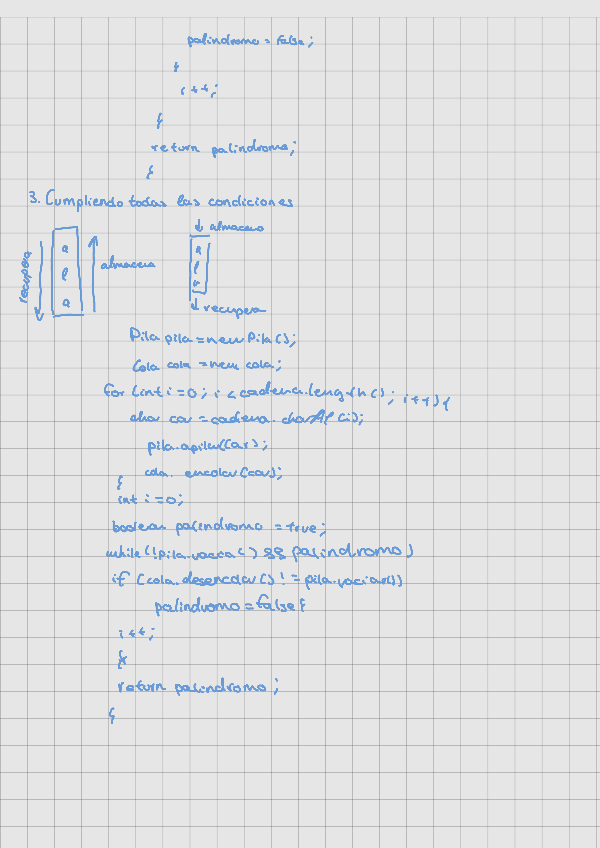 palindromo = false;
}
i++;
}
return palindromo;
}
3. Cumpliendo todas las condiciones
↓ almaceno
recupera
a
l
a
almacena
a
l
a
↓ recupera
Pila pila = new Pila();
Cola cola = new cola;
for (int i = 0; i < cadena.length(); i++) {
char car = cadena.charAt(i);
pila.apilar(car);
cola. encolar(car);
}
int i = 0;
boolean palindromo = true;
while (!pila.vacia() && palindromo)
if (cola.desencolar() != pila.vaciar())
palindromo = false}
i++;
}
return palindromo;
}